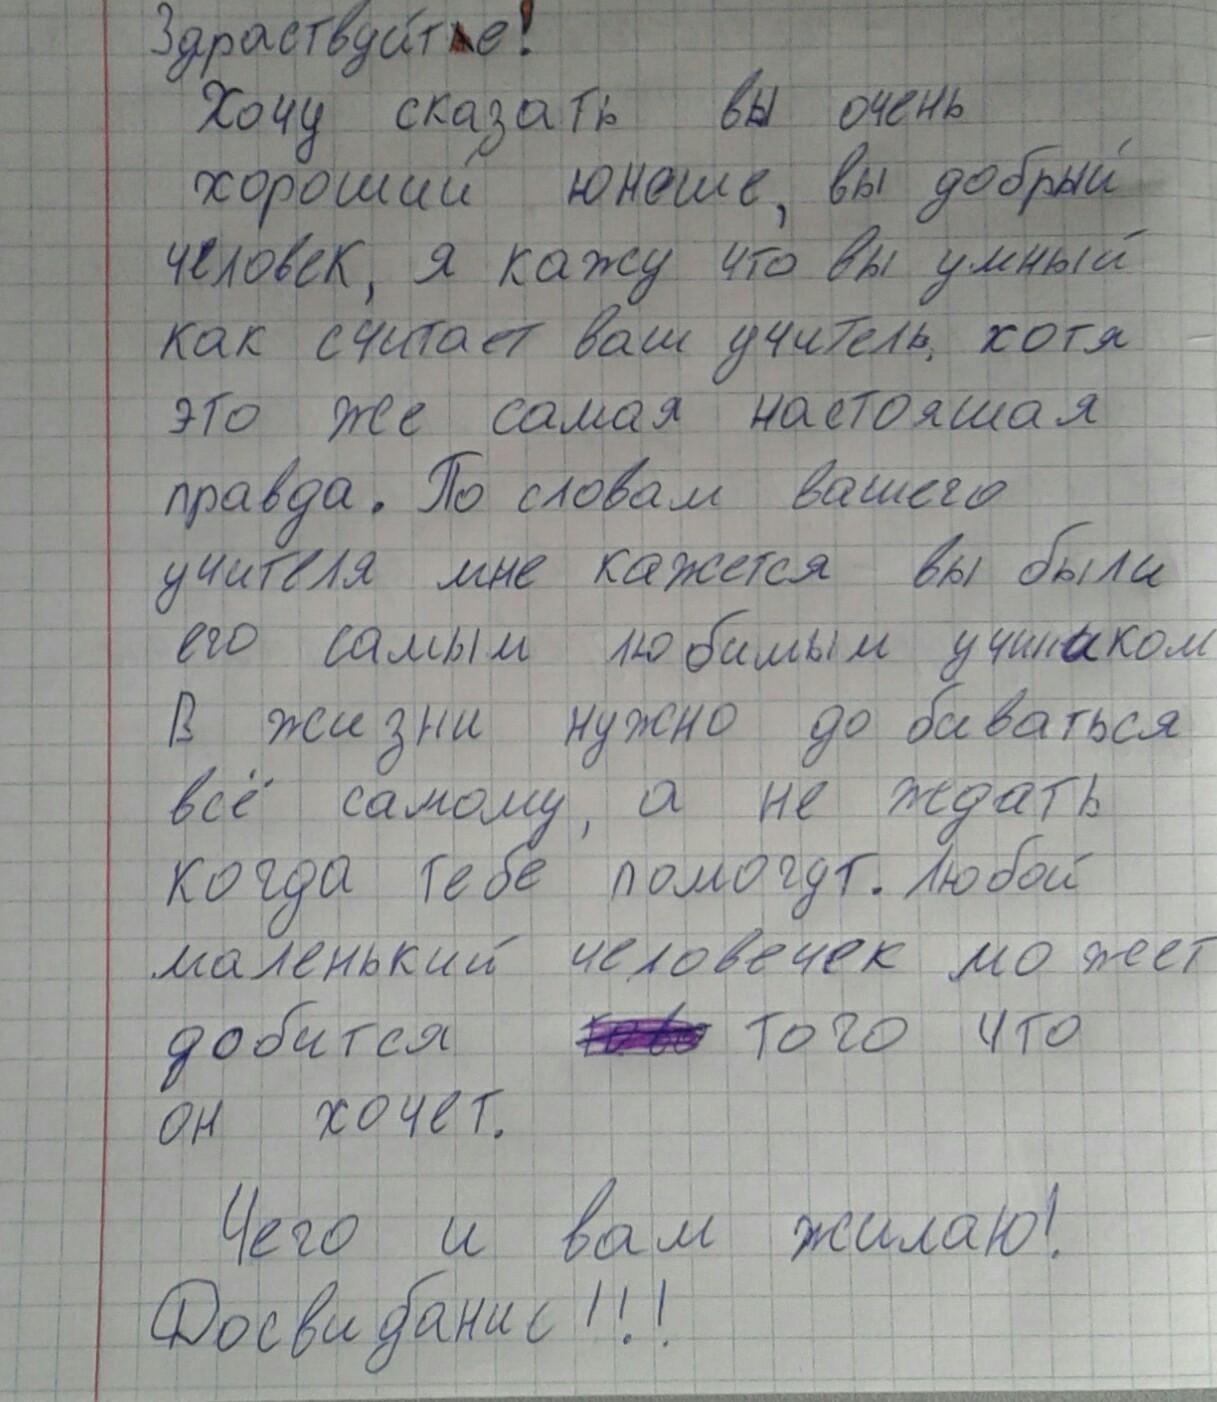 Здраствуйте!
Хочу сказать вы очень
хороший юноше, вы добрый
человек, я кажу что вы умный
как считает ваш учитель, хотя
это же самая настояшая
правда. По словам вашего
учителя мне кажется вы были
его самым любимым учиником
В жизни нужно до биваться
всё самому, а не ждать
когда тебе помогут. Любой
маленький человечек может
добится того что
он хочет.
Чего и вам жилаю!
Досвидание!!!